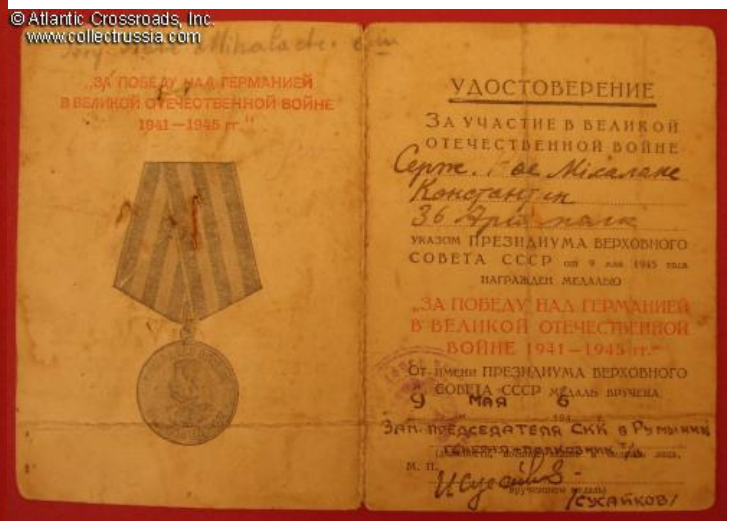 © Atlantic Crossroads, Inc.
www.collectrussia.com
Mihalache
„ЗА ПОБЕДУ НАД ГЕРМАНИЕЙ
В ВЕЛИКОЙ ОТЕЧЕСТВЕННОЙ ВОЙНЕ
1941—1945 гг."
УДОСТОВЕРЕНИЕ
ЗА УЧАСТИЕ В ВЕЛИКОЙ
ОТЕЧЕСТВЕННОЙ ВОЙНЕ
Серж.
Константин
36 Арт полк
УКАЗОМ ПРЕЗИДИУМА ВЕРХОВНОГО
СОВЕТА СССР от 9 мая 1945 года
НАГРАЖДЕН МЕДАЛЬЮ
„ЗА ПОБЕДУ НАД ГЕРМАНИЕЙ
В ВЕЛИКОЙ ОТЕЧЕСТВЕННОЙ
ВОЙНЕ 1941—1945 гг."
ОТ ИМЕНИ ПРЕЗИДИУМА ВЕРХОВНОГО
СОВЕТА СССР МЕДАЛЬ ВРУЧЕНА
9 МАЯ 194 6
ЗАМ. ПРЕДСЕДАТЕЛЯ СКК В РУМЫНИИ
ГЕНЕРАЛ-ПОЛКОВНИК Т/В
М. П.
вручившего медаль)
/СУСАЙКОВ/